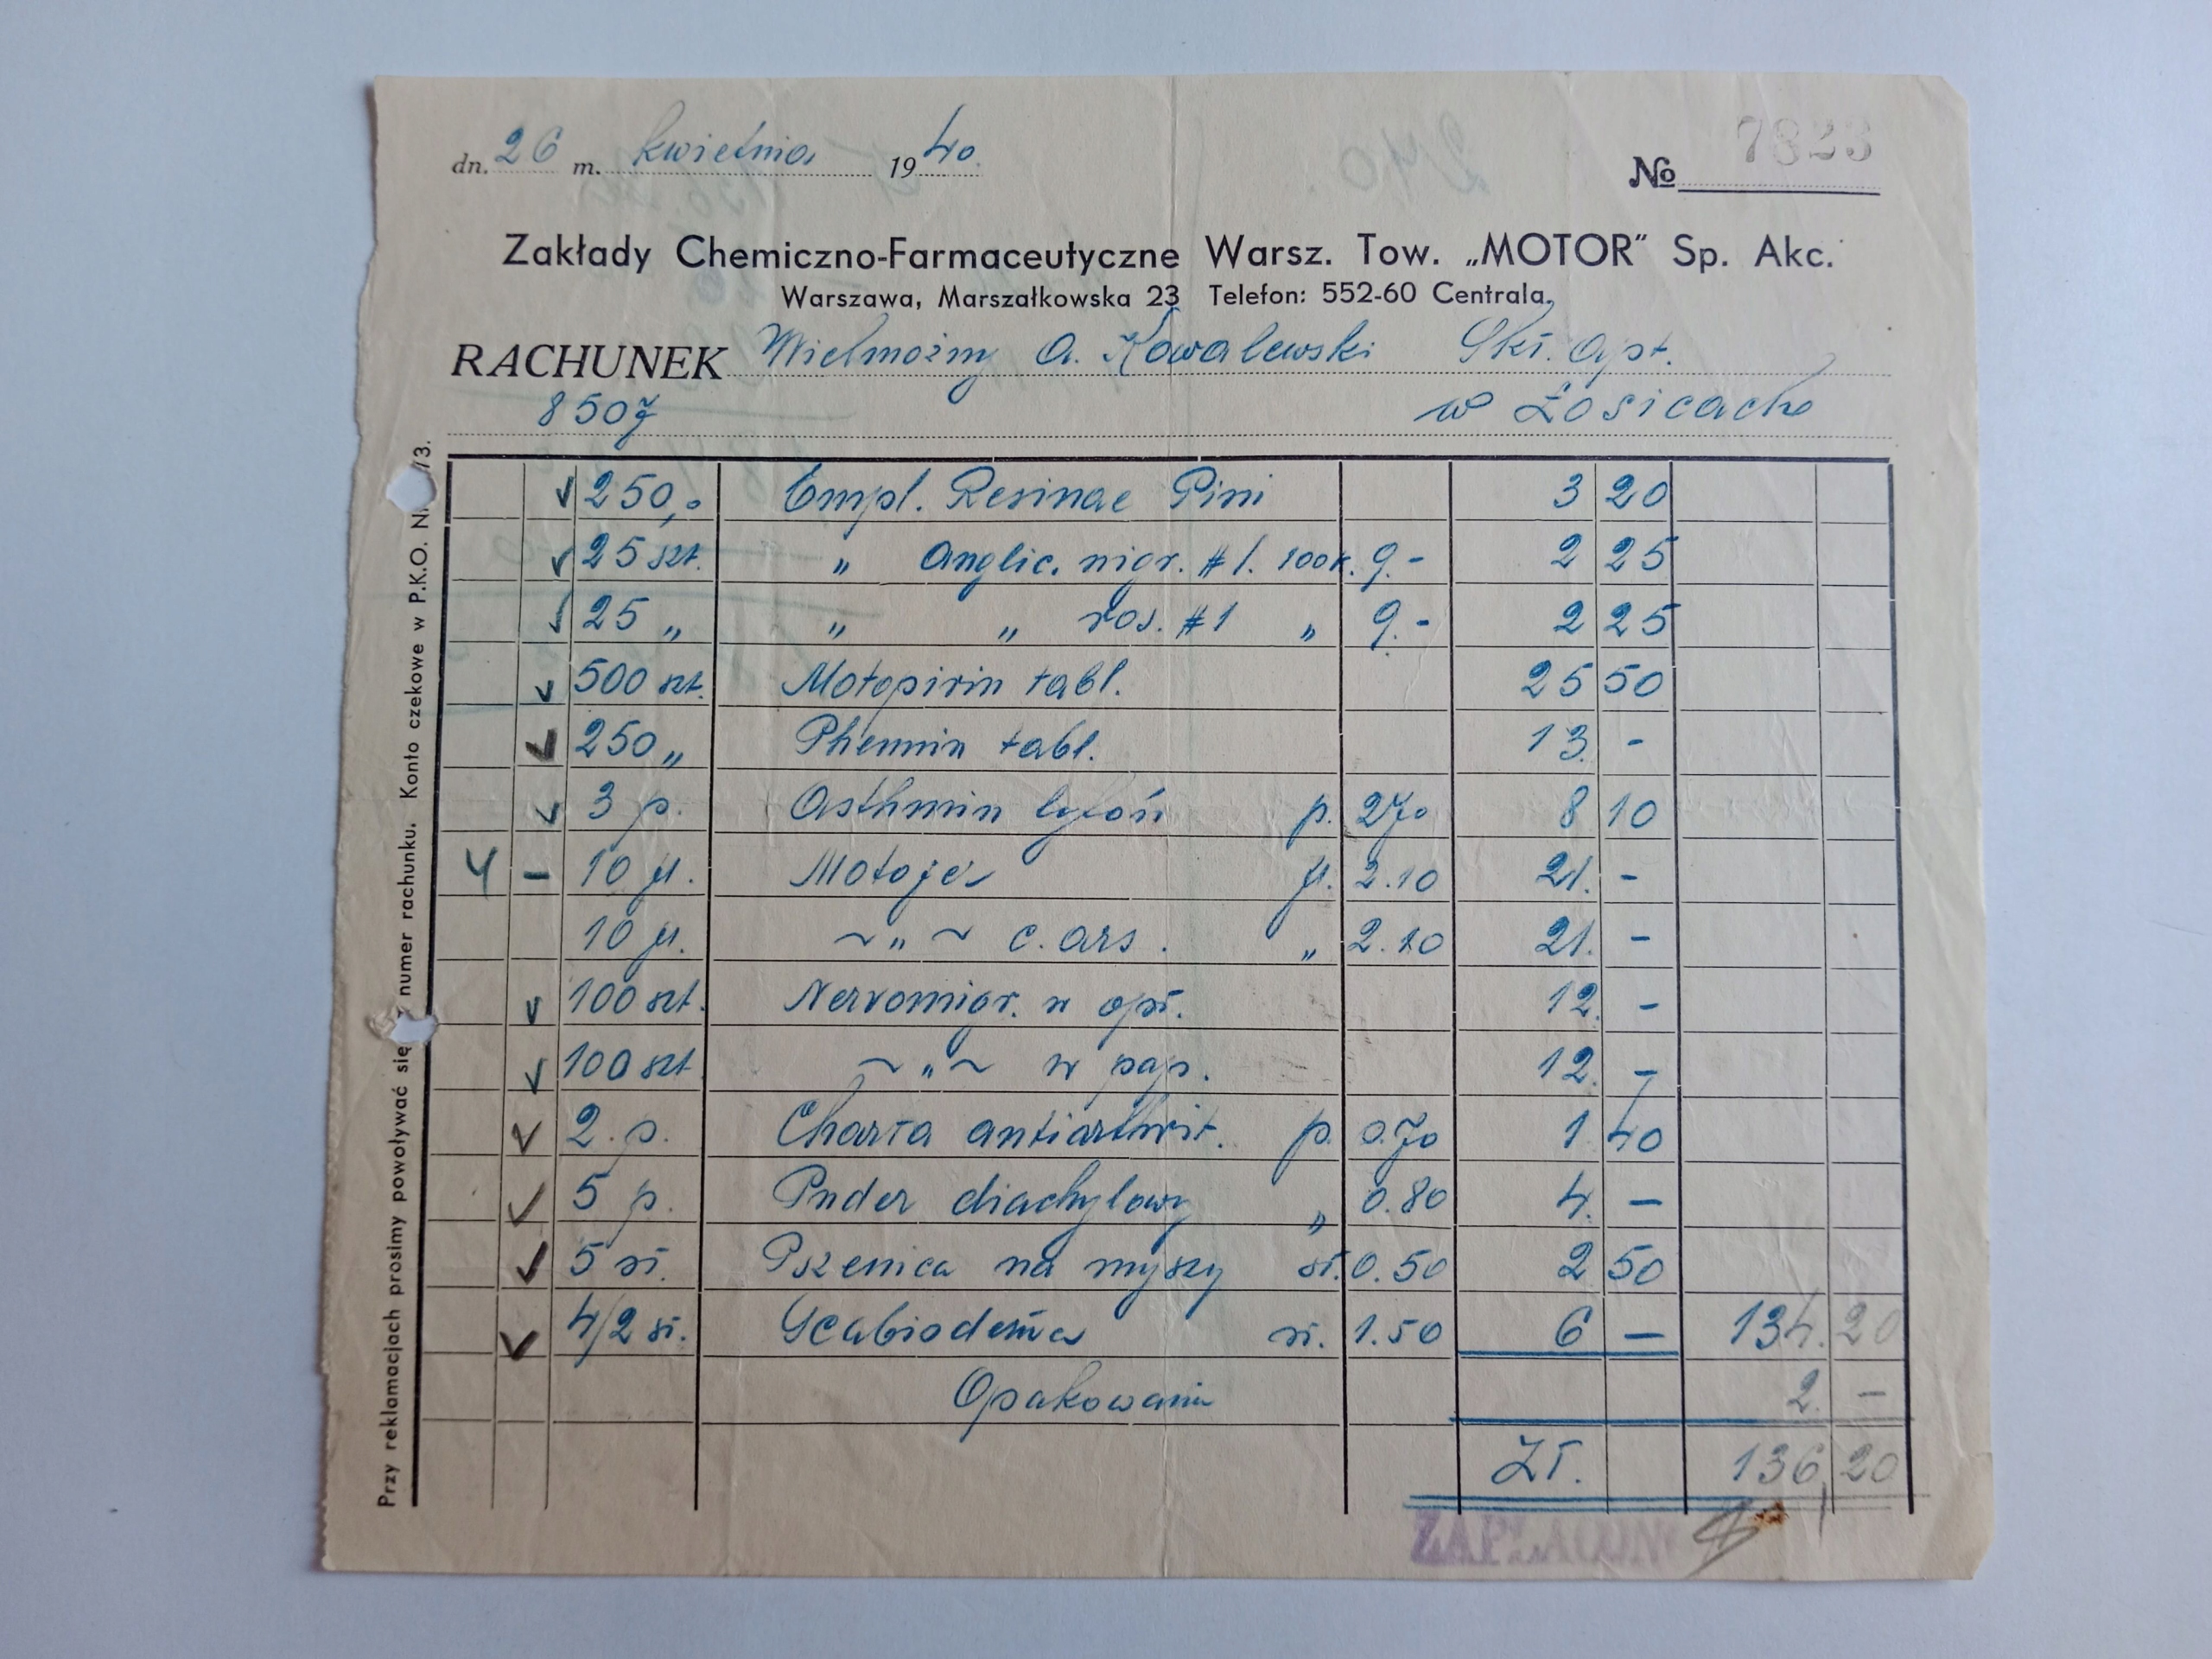 dn. 26 m. kwietnia 1940.
No 7823
Zakłady Chemiczno-Farmaceutyczne Warsz. Tow. „MOTOR" Sp. Akc.
Warszawa, Marszałkowska 23 Telefon: 552-60 Centrala.
RACHUNEK Wielmożny A. Kowalewski Skł. Apt.
8507 w Łosicach
250,0 Empl. Resinae Pini 3 20
25 szt. " Anglic. nigr. #1. 100k. 9.- 2 25
25 " " " ros. #1 " 9.- 2 25
500 szt. Motopirin tabl. 25 50
250 " Phenmin tabl. 13 -
3 p. Asthmin tytoń p. 2 70 8 10
4 - 10 fl. Motofer fl. 2.10 21. -
10 fl. ~ " ~ c. ars. " 2.10 21. -
100 szt. Nervomigr. w opł. 12. -
100 szt ~ " ~ w pap. 12. -
2. p. Charta antiarthrit. p. 0.70 1 40
5 p. Puder diachylowy " 0.80 4. -
5 sł. Pszenica na myszy sł. 0.50 2 50
4/2 sł. Scabioderma sł. 1.50 6 - 134. 20
Opakowanie 2. -
Zł. 136 20
ZAPŁACONO
Przy reklamacjach prosimy powoływać się numer rachunku. Konto czekowe w P.K.O. Nr 73.